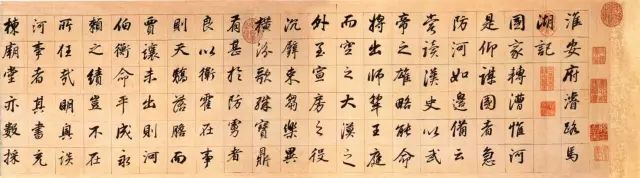 淮安府濬路馬
湖記
國家轉漕惟河
是仰謀國者急
防河如邊備云
嘗讀漢史以武
帝之雄略能命
將出師犂王庭
而空之大漠之
外至宣房之役
沉束芻樂異
橫汾歌殊寶鼎
甚於防虜者
良以衛霍在事
則天驕落膽而
賈讓未出則河
伯衡命平成永
賴之績豈不在
所任哉明興談
河事者其書充
棟廟堂亦數採